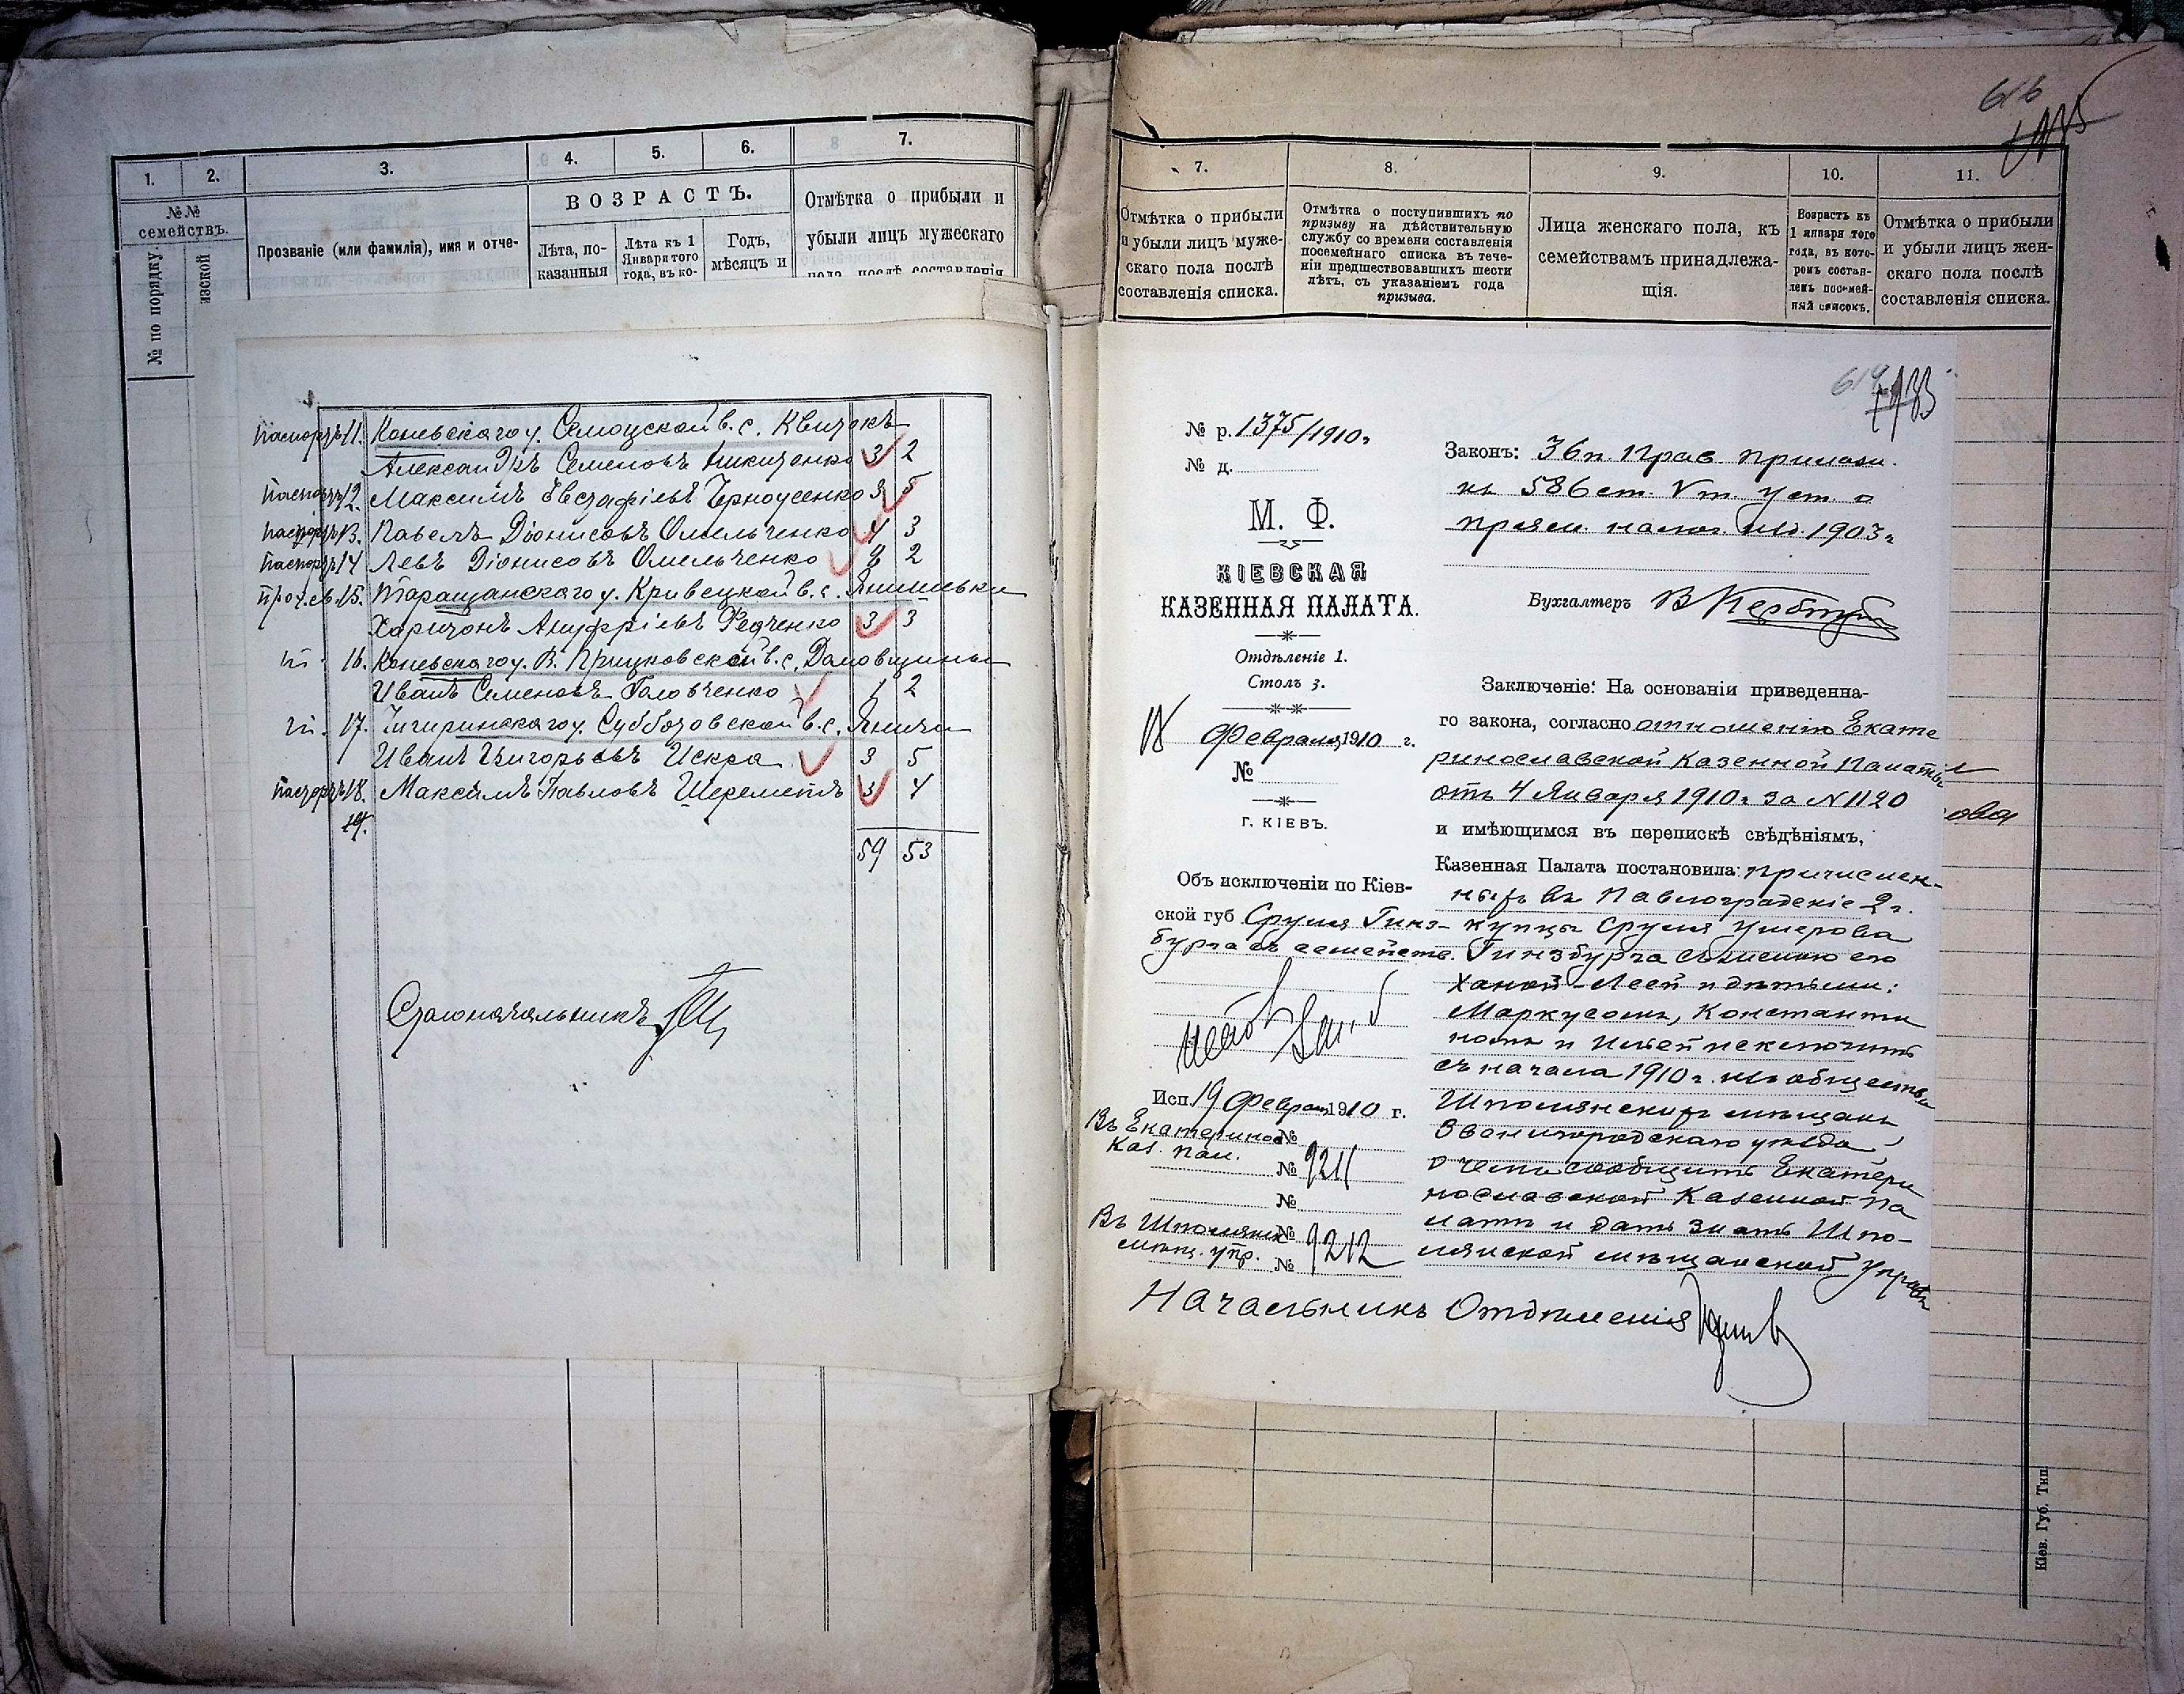 1.
2.
3.
4.
5.
6.
7.
№№ семействъ.
№ по порядку.
изской
Прозваніе (или фамилія), имя и отче-
ВОЗРАСТЪ.
Лѣта, по-
казанныя
Лѣта къ 1
Января того
года, въ ко-
Годъ,
мѣсяцъ и
Отмѣтка о прибыли и
убыли лицъ мужескаго
пола послѣ составленія
11. Каневскаго у. в. с. Квитокъ
Александръ Семеновъ Никитенко 3 2
12. Максимъ Евстафіевъ Черноусенко 3 5
13. Павелъ Діонисовъ Омельченко 4 3
14. Левъ Діонисовъ Омельченко 2 2
15. Таращанскаго у. Кривецкой в. с. Янишевки
Харитонъ Ануфріевъ Федченко 3 3
16. Каневскаго у. В. Прицковской в. с.
Иванъ Семеновъ Головченко 1 2
17. Чигиринскаго у. Субботовской в. с.
Иванъ Григорьевъ Искра 3 5
18. Максимъ Павловъ Шереметъ 3 4
19.
59 53
Столоначальникъ
616
7.
8.
9.
10.
11.
Отмѣтка о прибыли
и убыли лицъ муже-
скаго пола послѣ
составленія списка.
Отмѣтка о поступившихъ по
призыву на дѣйствительную
службу со времени составленія
посемейнаго списка въ тече-
ніи предшествовавшихъ шести
лѣтъ, съ указаніемъ года
призыва.
Лица женскаго пола, къ
семействамъ принадлежа-
щія.
Возрастъ къ
1 января того
года, въ кото-
ромъ состав-
ленъ посемей-
ный списокъ.
Отмѣтка о прибыли
и убыли лицъ жен-
скаго пола послѣ
составленія списка.
№ р. 1375/1910 г.
№ д.
М. Ф.
КІЕВСКАЯ
КАЗЕННАЯ ПАЛАТА.
Отдѣленіе 1.
Столъ 3.
18 Февраля 1910 г.
№
г. КІЕВЪ.
Объ исключеніи по Кіев-
ской губ. Сруля Гинз-
бурга съ семейств.
Исп. 19 Февраля 1910 г.
Въ Екатеринос. №
Каз. Пал. № 9211
№
Въ Шполянск. №
мѣщ. упр. № 9212
Законъ: 36 п. Прав. прилож.
къ 586 ст. V т. уст. о
прям. налог. изд. 1903 г.
Бухгалтеръ
Заключеніе: На основаніи приведенна-
го закона, согласно отношенію Екате
ринославской Казенной Палаты
отъ 4 Января 1910 г. за N 1120
и имѣющимся въ перепискѣ свѣдѣніямъ,
Казенная Палата постановила: причислен-
ныхъ въ Павлоградскіе 2 г.
купцы Сруля Ушерова
Гинзбурга съ женою его
Ханой-Леей и дѣтьми:
Маркусомъ, Константи
номъ и исключить
съ начала 1910 г. изъ общества
Шполянскихъ мѣщанъ
Звенигородскаго уѣзда
о чемъ сообщить Екатери
нославской Казенной Па
латѣ и дать знать Шпо-
лянской мѣщанской Управѣ
Начальникъ Отдѣленія
Кіев. Губ. Тип.